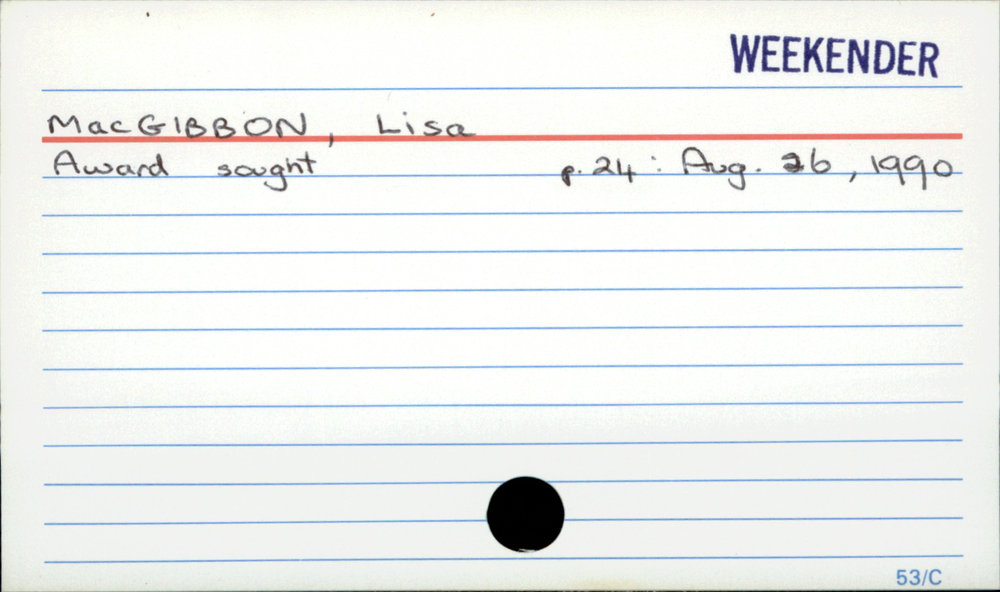 WEEKENDER
MacGIBBON, Lisa
Award sought p.24 : Aug. 26, 1990
53/C